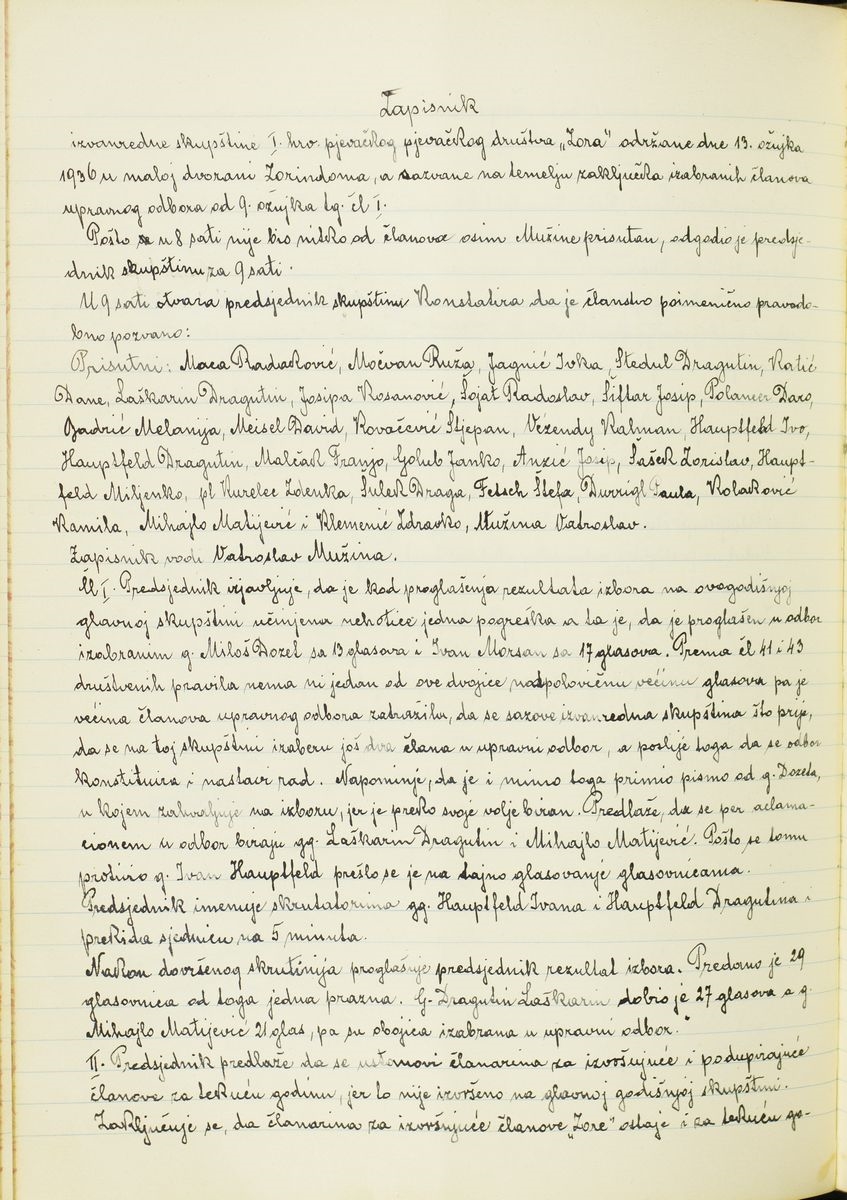 Zapisnik
izvanredne skupštine I. hrv. pjevačkog pjevačkog društva „Zora" održane dne 13. ožujka
1936 u maloj dvorani Zorindoma, a sazvane na temelju zaključka izabranih članova
upravnog odbora od 9. ožujka tg. čl I.
Pošto se u 8 sati nije bio nitko od članova osim Mužine prisutan, odgodio je predsje-
dnik skupštinu za 9 sati.
U 9 sati otvara predsjednik skupštinu Konstatira da je članstvo poimenično pravodo-
bno pozvano:
Prisutni: Maca Radaković, Močvan Ruža, Jagnić Ivka, Stedul Dragutin, Katić
Dane, Laškarin Dragutin, Josipa Kosanović, Šojat Radoslav, Šiftar Josip, Polamer Daro,
Gadrić Melanija, Meisel David, Kovačević Stjepan, Vezendy Kalman, Hauptfeld Ivo,
Hauptfeld Dragutin, Malčak Franjo, Golub Janko, Anzić Josip, Šašek Zorislav, Haupt-
feld Miljenko, pl Kurelec Zdenka, Sulek Draga, Fetsch Štefa, Durrigl Paula, Kolaković
Kamila, Mihajlo Matijević i Klemenić Zdravko, Mužina Vatroslav.
Zapisnik vodi Vatroslav Mužina.
Čl I. Predsjednik izjavljuje, da je kod proglašenja rezultata izbora na ovogodišnjoj
glavnoj skupštini učinjena nehotice jedna pogreška a ta je, da je proglašen u odbor
izabranim g. Miloš Dozet sa 13 glasova i Ivan Morsan sa 17 glasova. Prema čl 41 i 43
društvenih pravila nema ni jedan od ove dvojice nadpolovičnu većinu glasova pa je
većina članova upravnog odbora zatražila, da se sazove izvanredna skupština što prije,
da se na toj skupštini izaberu još dva člana u upravni odbor, a poslije toga da se odbor
konstituira i nastavi rad. Napominje, da je i mimo toga primio pismo od g. Dozeta,
u kojem zahvaljuje na izboru, jer je preko svoje volje biran. Predlaže, da se per aclama-
cionem u odbor biraju gg. Laškarin Dragutin i Mihajlo Matijević. Pošto se tomu
protivio g. Ivan Hauptfeld prešlo se je na tajno glasovanje glasovnicama.
Predsjednik imenuje skrutatorima gg. Hauptfeld Ivana i Hauptfeld Dragutina i
prekida sjednicu na 5 minuta.
Nakon dovršenog skrutinija proglašuje predsjednik rezultat izbora. Predano je 29
glasovnica od toga jedna prazna. G. Dragutin Laškarin dobio je 27 glasova a g.
Mihajlo Matijević 21 glas, pa su obojica izabrana u upravni odbor."
II. Predsjednik predlaže da se ustanovi članarina za izvršujuće i podupirajuće
članove za tekuću godinu, jer to nije izvršeno na glavnoj godišnjoj skupštini.
Zaključuje se, da članarina za izvršujuće članove „Zore" ostaje i za tekuću go-